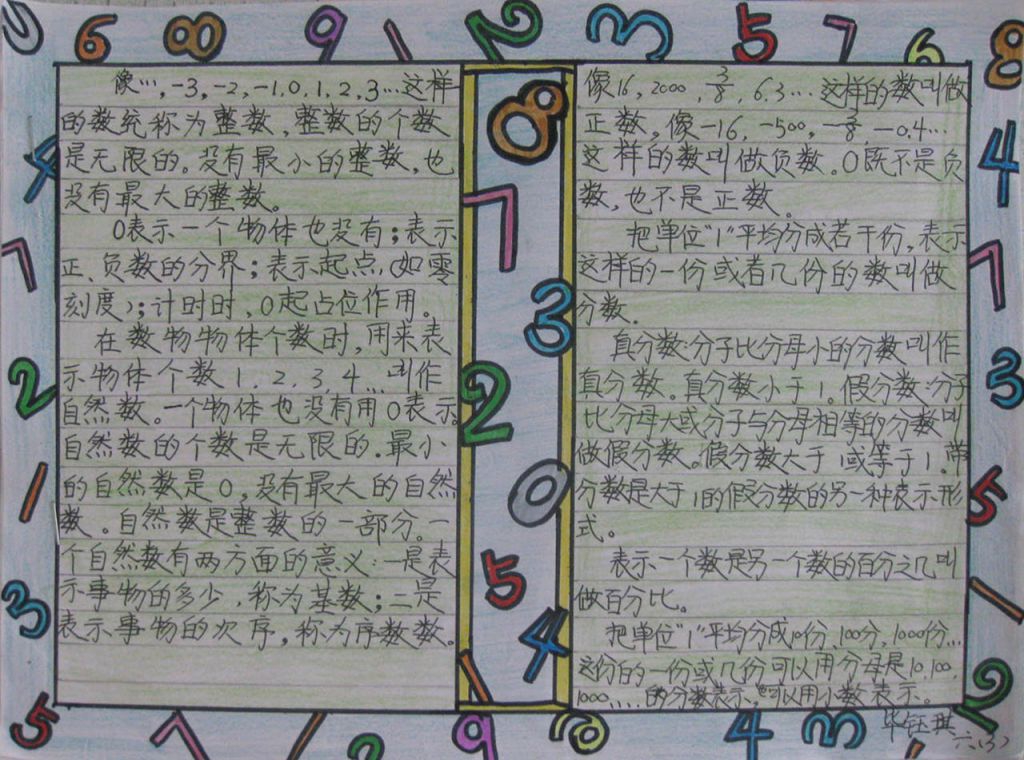 像…,-3,-2,-1,0,1,2,3…这样
的数统称为整数,整数的个数
是无限的。没有最小的整数,也
没有最大的整数。
0表示一个物体也没有;表示
正、负数的分界;表示起点(如零
刻度);计时时,0起占位作用。
在数物物体个数时,用来表
示物体个数1,2,3,4…叫作
自然数。一个物体也没有用0表示。
自然数的个数是无限的.最小
的自然数是0,没有最大的自然
数。自然数是整数的一部分。一
个自然数有两方面的意义:一是表
示事物的多少,称为基数;二是
表示事物的次序,称为序数数。
像16,2000,3/8,6.3…这样的数叫做
正数,像-16,-500,-3/8,-0.4…
这样的数叫做负数。0既不是负
数,也不是正数。
把单位"1"平均分成若干份,表示
这样的一份或者几份的数叫做
分数.
真分数:分子比分母小的分数叫作
真分数。真分数小于1.假分数:分子
比分母大或分子与分母相等的分数叫
做假分数。假分数大于1或等于1.带
分数是大于1的假分数的另一种表示形
式。
表示一个数是另一个数的百分之几叫
做百分比。
把单位"1"平均分成10份、100分,1000份…
这份的一份或几份可以用分母是10,100
1000……的分数表示,也可以用小数表示。
华钰琪
六(3)
6
8
9
1
2
3
5
7
6
8
4
7
2
1
3
5
7
1
2
9
6
4
3
1
2
1
5
3
7
4
8
7
3
2
0
5
4
1